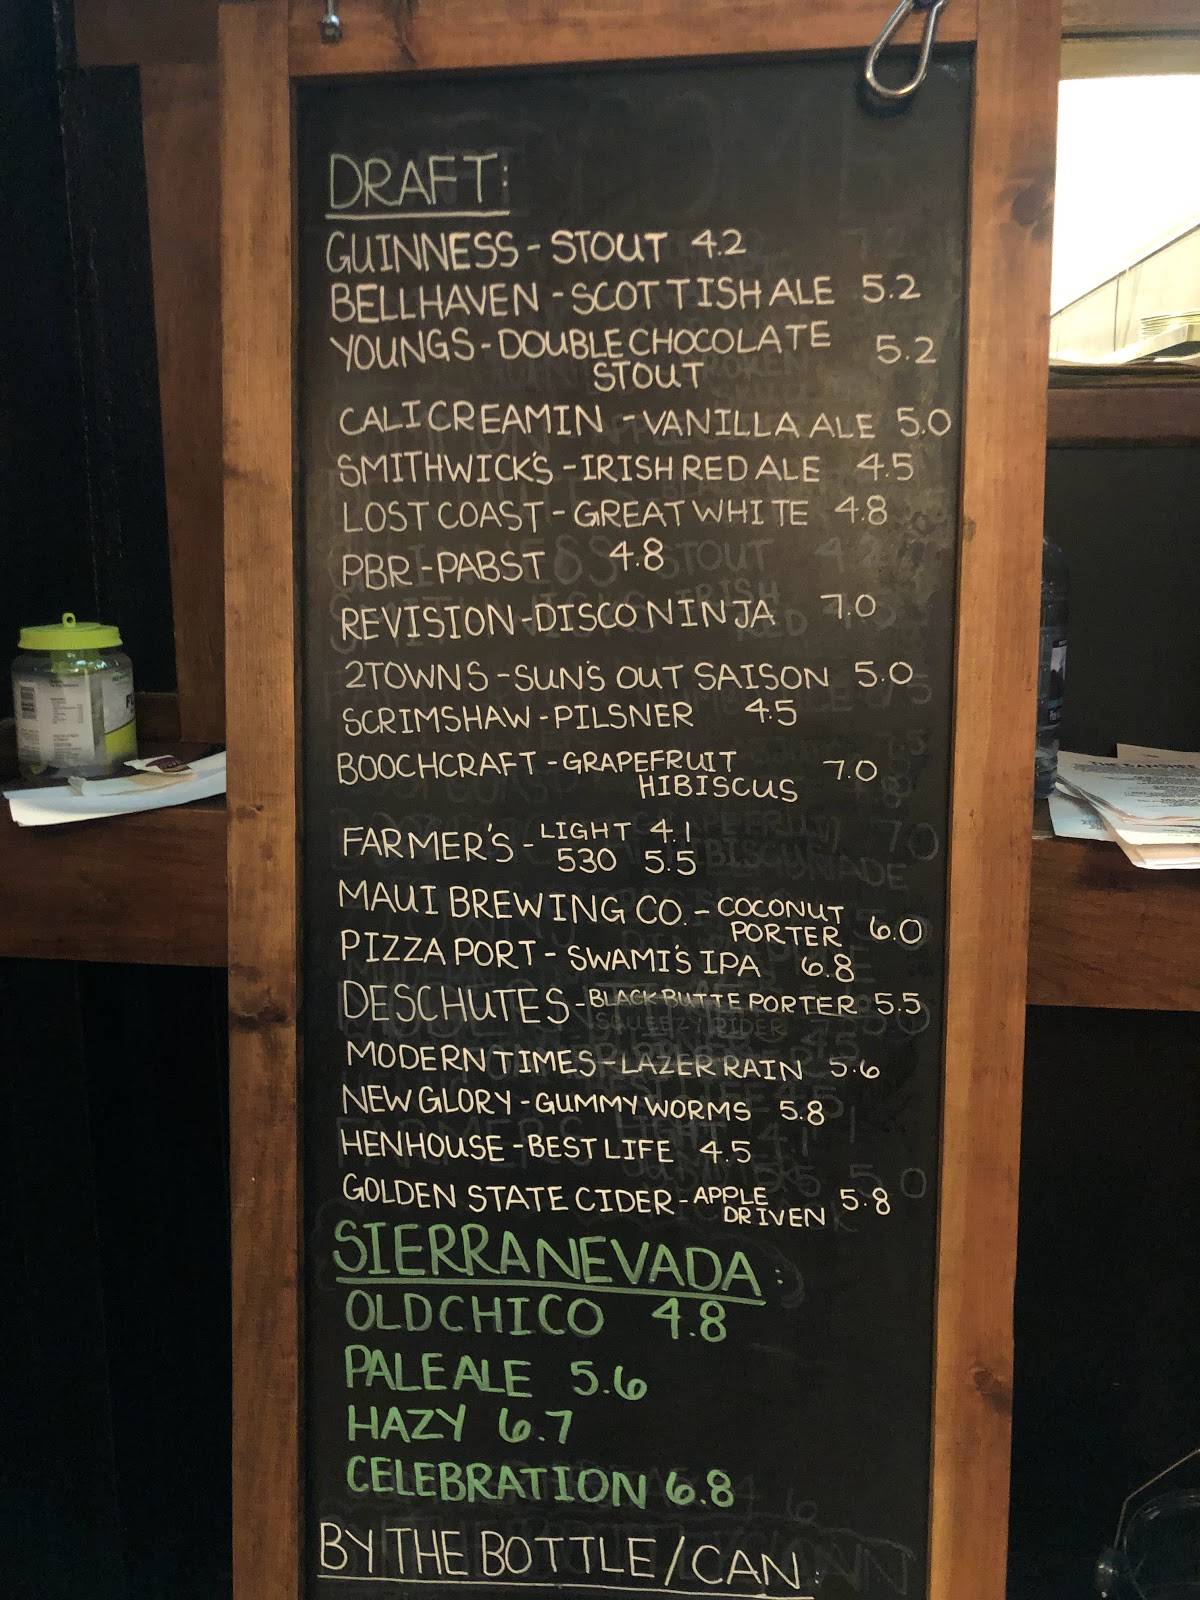 DRAFT:
GUINNESS - STOUT 4.2
BELLHAVEN - SCOTTISH ALE 5.2
YOUNGS - DOUBLE CHOCOLATE 5.2
STOUT
CALI CREAMIN - VANILLA ALE 5.0
SMITHWICK'S - IRISH RED ALE 4.5
LOST COAST - GREAT WHITE 4.8
PBR - PABST 4.8
REVISION - DISCO NINJA 7.0
2TOWNS - SUN'S OUT SAISON 5.0
SCRIMSHAW - PILSNER 4.5
BOOCHCRAFT - GRAPEFRUIT 7.0
HIBISCUS
FARMER'S - LIGHT 4.1
530 5.5
MAUI BREWING CO. - COCONUT
PORTER 6.0
PIZZA PORT - SWAMI'S IPA 6.8
DESCHUTES - BLACK BUTTE PORTER 5.5
MODERN TIMES - LAZER RAIN 5.6
NEW GLORY - GUMMY WORMS 5.8
HENHOUSE - BEST LIFE 4.5
GOLDEN STATE CIDER - APPLE 5.8
DRIVEN
SIERRA NEVADA:
OLD CHICO 4.8
PALE ALE 5.6
HAZY 6.7
CELEBRATION 6.8
BY THE BOTTLE/CAN: